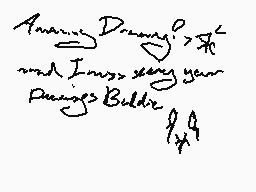 Amazing Drawing! >:3c
and I miss seeing your
Drawings Buddie